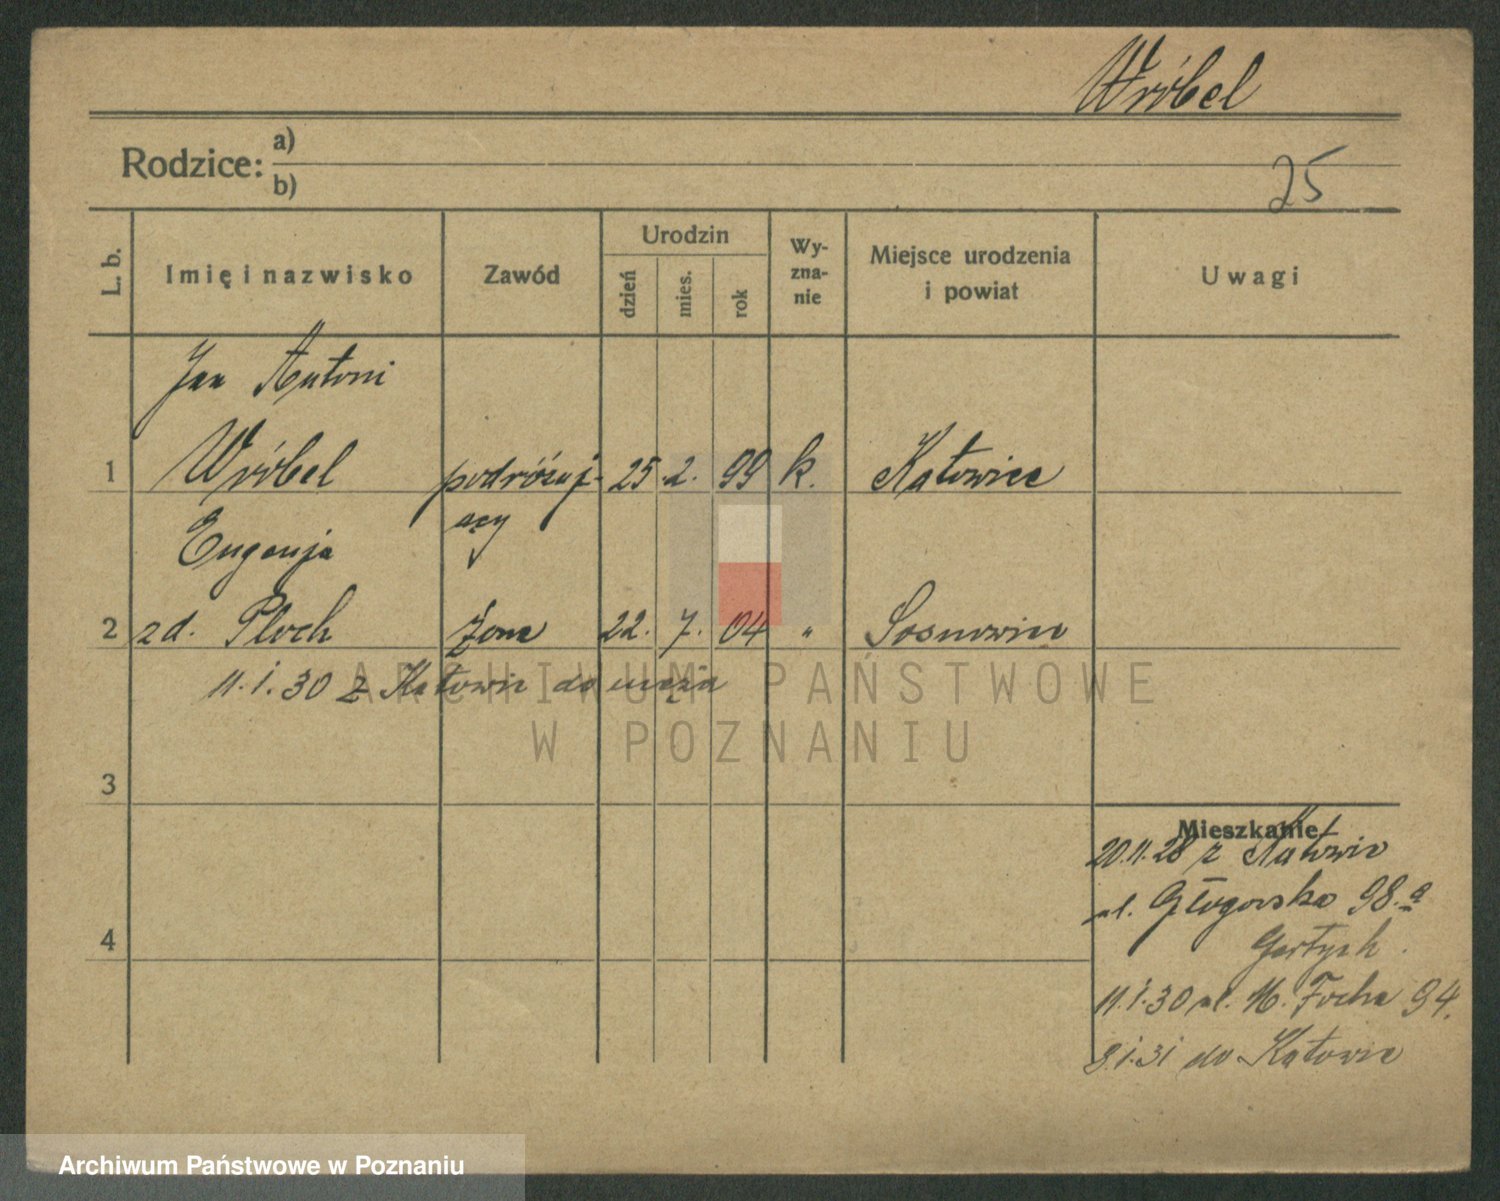 Wróbel
Rodzice: a)
b)
25
L. b.
Imię i nazwisko
Zawód
Urodzin
dzień
mies.
rok
Wy-
zna-
nie
Miejsce urodzenia
i powiat
Uwagi
Jan Antoni
1 Wróbel podróżuj- 25. 2. 99 k. Katowice
ący
Eugenja
2 zd. Ploch żona 22. 7. 04 " Sosnowiec
11.1.30 z Katowic do męża
3
4
Mieszkanie
20.11.28 z Katowic
ul. Głogowska 98.a
Gartych.
11.1.30 ul. M. Focha 94.
8.1.31 do Katowic
ARCHIWUM PAŃSTWOWE
W POZNANIU
Archiwum Państwowe w Poznaniu